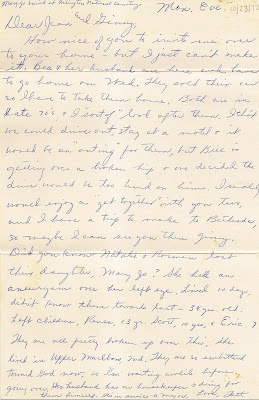 Maryjo buried at Arlington Nat'l Cemetery
Mon. Eve. 10/23/7
Dear Jean and Ginny,
How nice of you to invite me over
to your home - but I just can't make
it. Bea & her husband are here and have
to go home on Wed, they sold their car
so I have to take them home. Both are in
late 70's & I sort of "look after" them. I tho't
we could drive out stay at a motel & it
would be an "outing" for them, but Bill is
getting over a broken hip & we decided the
drive would be too hard on him. I really
would enjoy a "get together" with you two,
and I have a trip to make to Bethesda,
so maybe I can see you then Ginny.
Did you know Natalie & Norman lost
their daughter, Mary Jo? She had an
aneurysm over her left eye, lived 10 days,
didn't know them towards last - 38 yrs. old.
Left children, 13 yr. Scott, 10 yrs, & Eric, 7
They are all pretty broken up over this. She
lived in Upper Marlboro Md. They are so embittered
toward God now, so I'm waiting awhile before
going over. Her husband has no housekeeper & doing for
them himself. He's in service a major. Love,